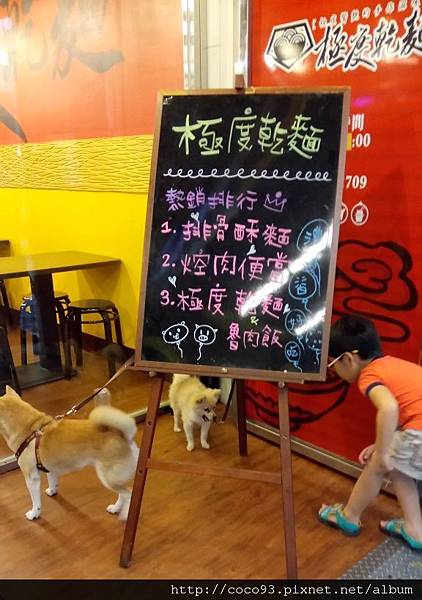 極度乾麵
極度乾麵
熱銷排行
1. 排骨酥麵
2. 焢肉便當
3. 極度乾麵
魯肉飯
:00
709
http://coco93.pixnet.net/album